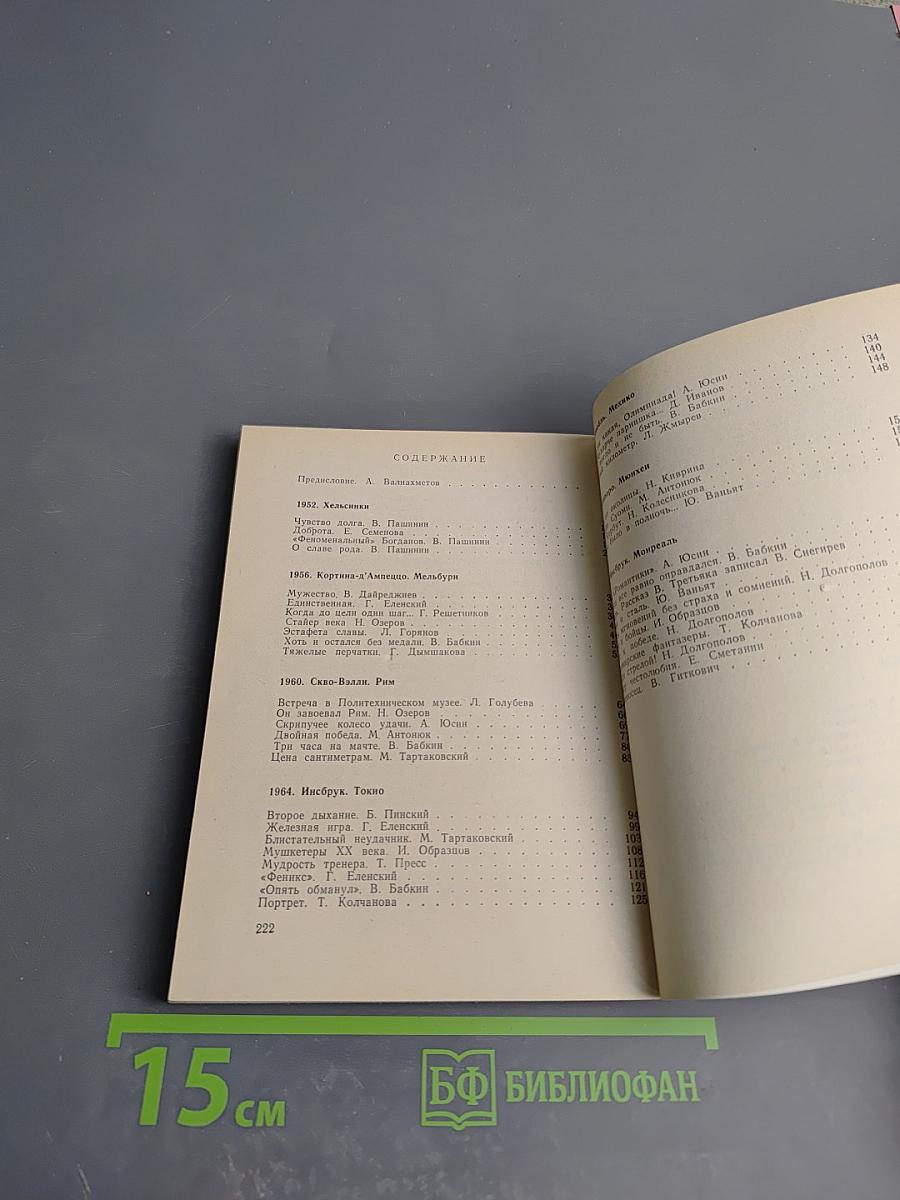 СОДЕРЖАНИЕ
Предисловие. А. Валиахметов
1952. Хельсинки
Чувство долга. В. Пашинин
Доброта. Е. Семенова
«Феноменальный» Богданов. В. Пашинин
О славе рода. В. Пашинин
1956. Кортина-д'Ампеццо. Мельбурн
Мужество. В. Дайреджиев
Единственная. Г. Еленский
Когда до цели один шаг... Г. Решетников
Стайер века Н. Озеров
Эстафета славы. Л. Горянов
Хоть и остался без медали. В. Бабкин
Тяжелые перчатки. Г. Дымшакова
1960. Скво-Вэлли. Рим
Встреча в Политехническом музее. Л. Голубева
Он завоевал Рим. Н. Озеров
Скрипучее колесо удачи. А. Юсин
Двойная победа. М. Антонюк
Три часа на мачте. В. Бабкин
Цена сантиметрам. М. Тартаковский
1964. Инсбрук. Токио
Второе дыхание. Б. Пинский 94
Железная игра. Г. Еленский 99
Блистательный неудачник. М. Тартаковский 103
Мушкетеры XX века. И. Образцов 108
Мудрость тренера. Т. Пресс 112
«Феникс». Г. Еленский 116
«Опять обманул». В. Бабкин 121
Портрет. Т. Колчанова 125
222
Мехико
Олимпиада! А. Юсин 134
парнишка... Д. Иванов 140
и не быть. В. Бабкин 144
километр. Л. Жмырев 148
Мюнхен
околицы. Н. Киврина
Суоми. М. Антонюк
Н. Колесникова
было в полночь... Ю. Ваньят
Монреаль
А. Юсин
все равно оправдался. В. Бабкин
Рассказ В. Третьяка записал В. Снегирев
и сталь. Ю. Ваньят
без страха и сомнений. Н. Долгополов
бойцы. И. Образцов
к победе. Н. Долгополов
фантазеры. Т. Колчанова
стрелой! Н. Долгополов
честолюбия. Е. Сметанин
В. Гиткович
15 см
БФ БИБЛИОФАН